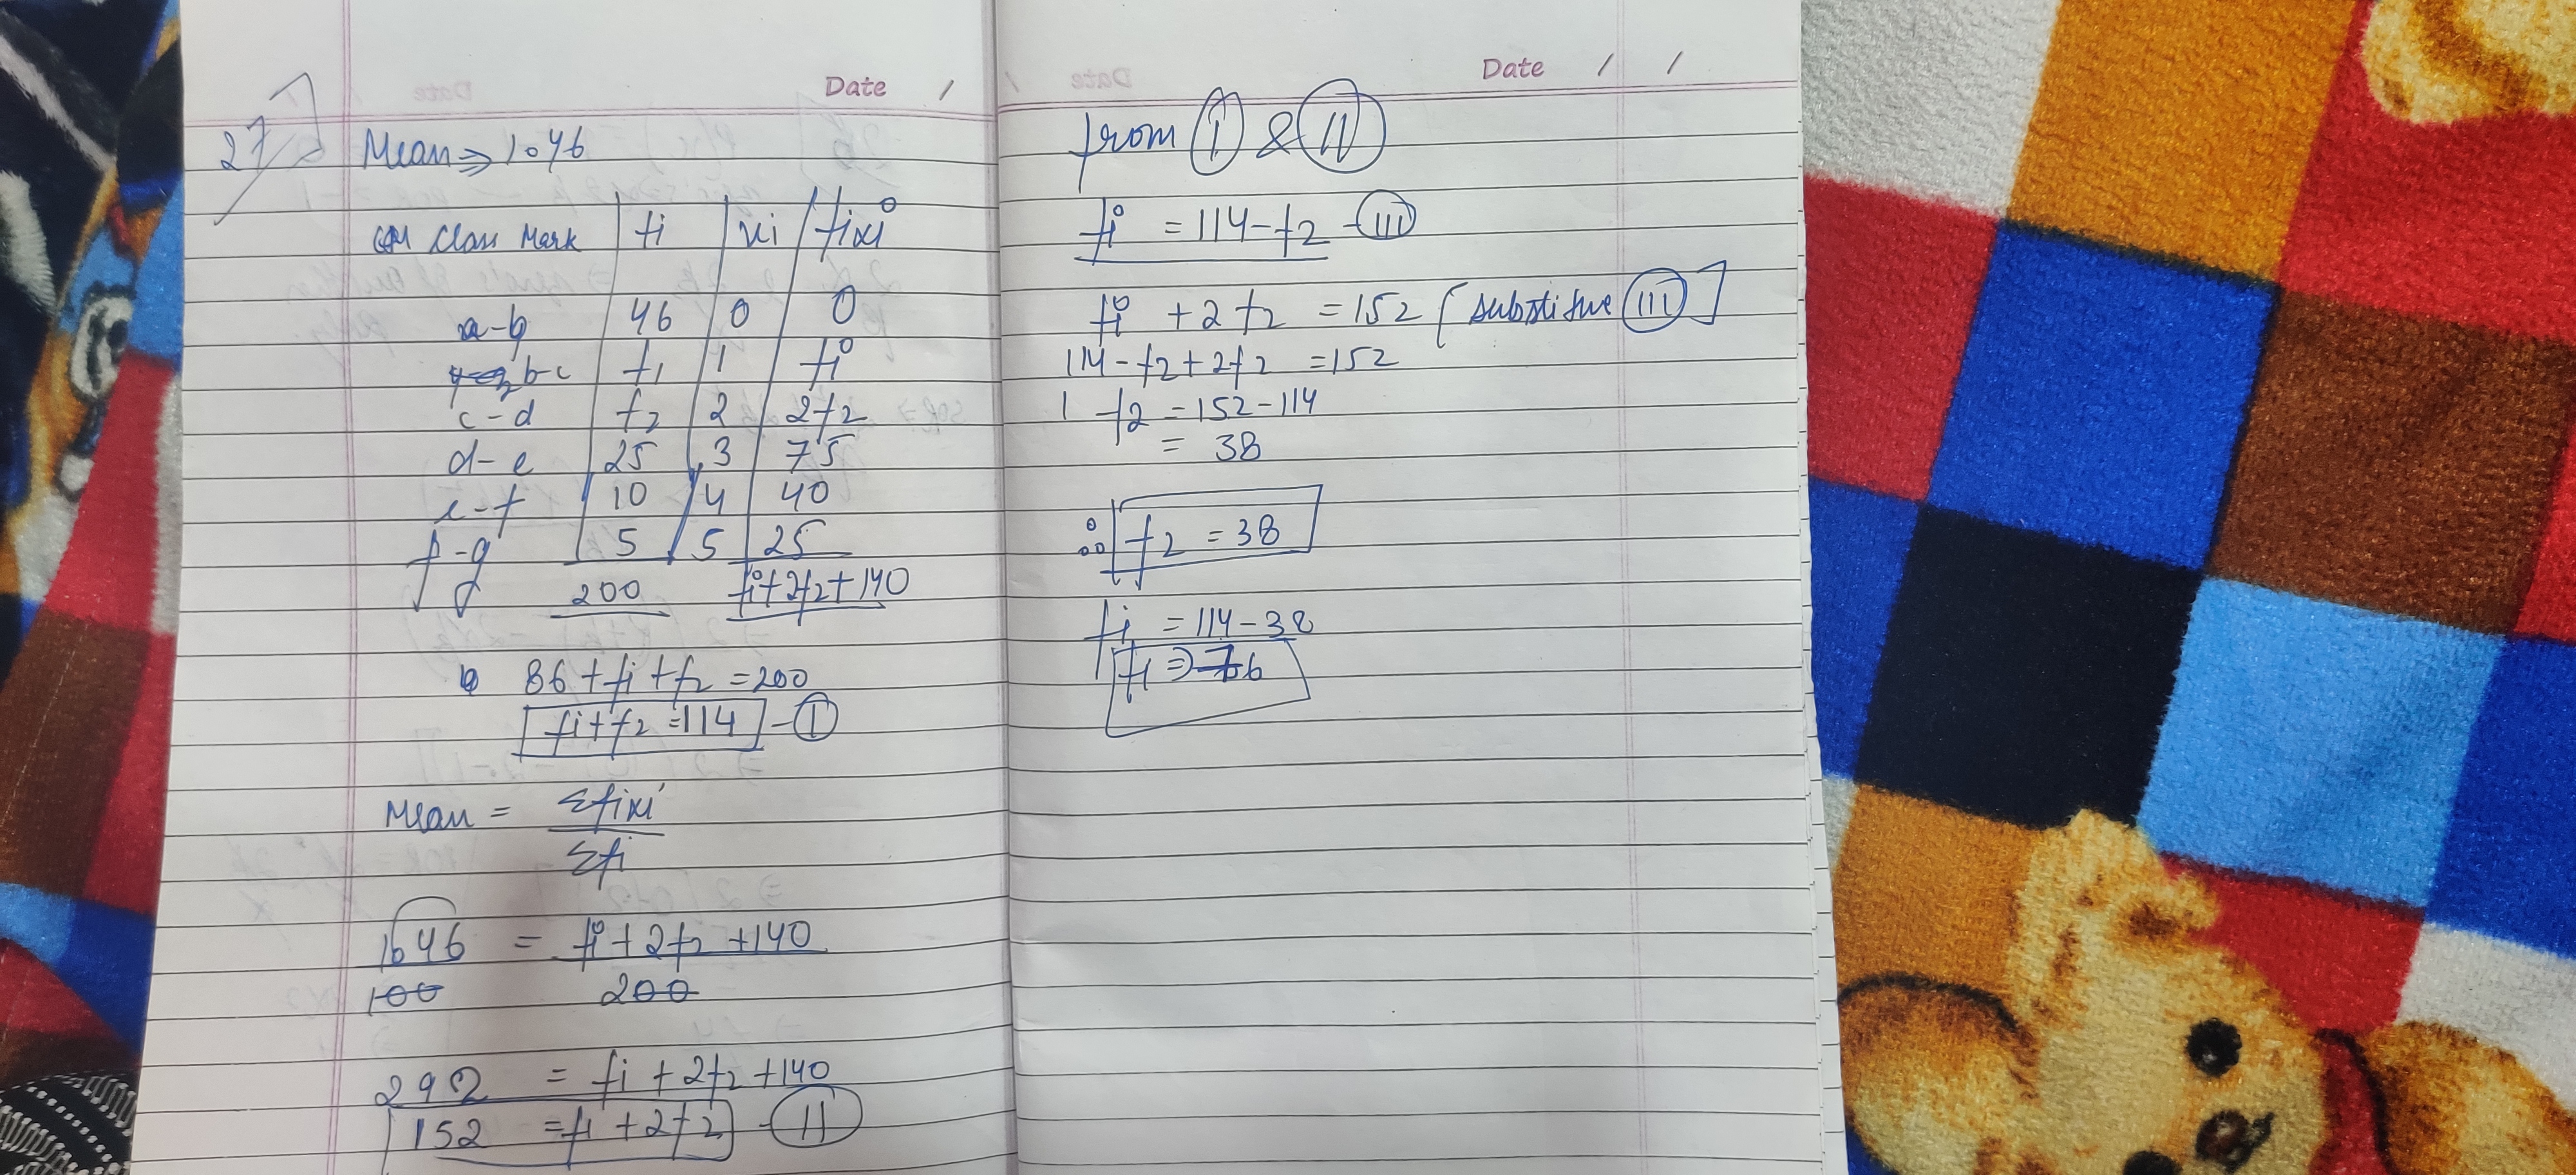 Date /
27 Mean ⇒ 1.46
Class Mark fi xi fixi
a-b 46 0 0
b-c f1 1 f1
c-d f2 2 2f2
d-e 25 3 75
e-f 10 4 40
f-g 5 5 25
200 f1+2f2+140
86 + f1 + f2 = 200
f1+f2 = 114 - I
Mean = Σfixi
Σfi
146 = f1 + 2f2 + 140
100 200
292 = f1 + 2f2 + 140
152 = f1 + 2f2 - II
Date / /
from I & II
f1 = 114 - f2 - III
f1 + 2f2 = 152 [substitue III]
114 - f2 + 2f2 = 152
f2 = 152 - 114
= 38
∴ f2 = 38
f1 = 114 - 38
f1 ⇒ 76